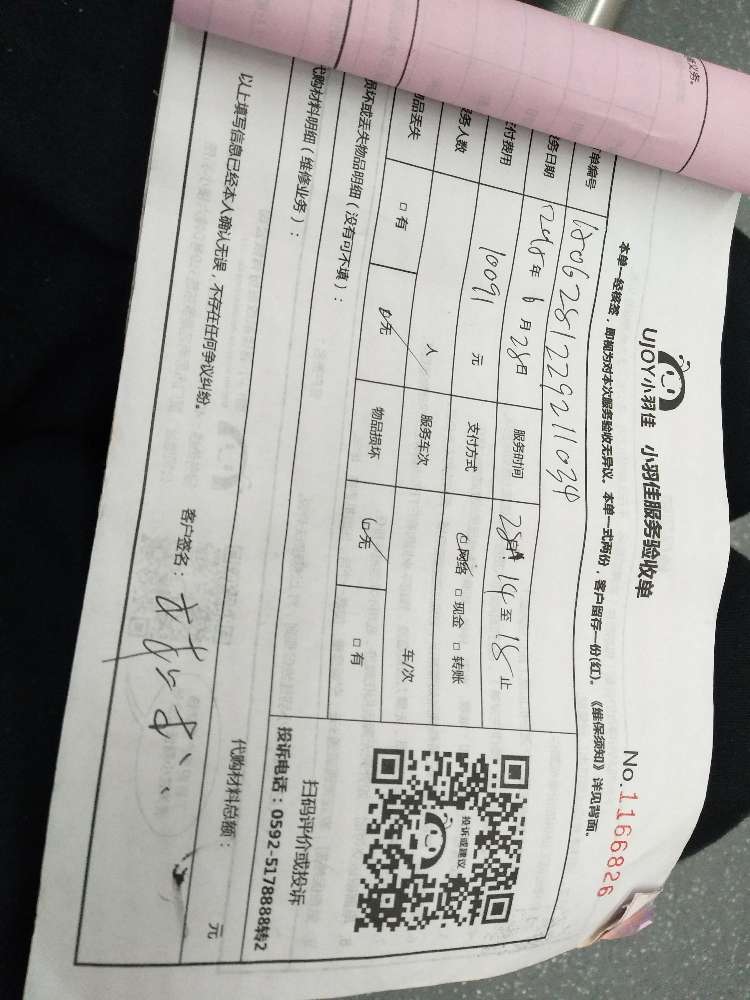 UJOY小羽佳 小羽佳服务验收单
No.1166826
本单一经接签，即视为对本次服务验收无异议。本单一式两份，客户留存一份(红)。《维保须知》详见背面。
单编号 1806281229211034
务日期 2018年6月28日 服务时间 14至18止
付费用 10091元 支付方式 ☑网络 □现金 □转账
务人数 人 服务车次 车/次
品丢失 □有 ☑无 物品损坏 ☑无 □有
损坏或丢失物品明细（没有可不填）：
代购材料明细（维修业务）：
投诉或建议
扫码评价或投诉
投诉电话：0592-5178888转2
代购材料总额： 元
以上填写信息已经本人确认无误，不存在任何争议纠纷。
客户签名：